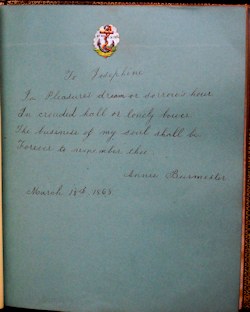 To Josephine
In Pleasures dream or sorrow's hour
In crowded hall or lonely bower
The business of my soul shall be
Forever to remember thee
Annie
March 18th